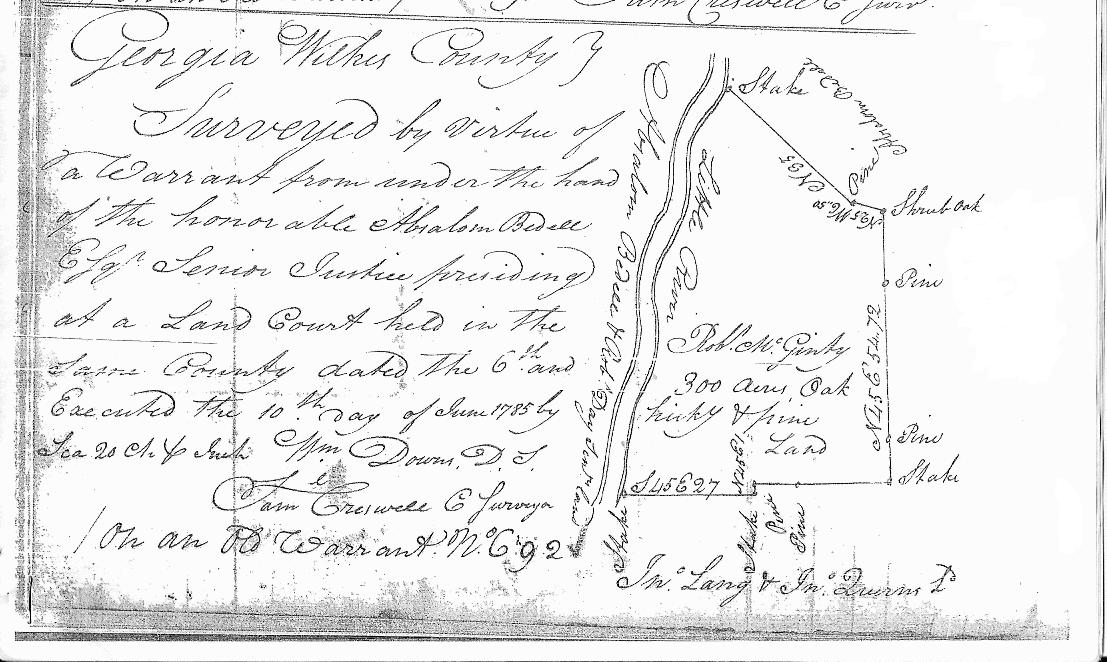 Sam Creswell C Surv.
Georgia Wilkes County }
Surveyed by virtue of
a Warrant from under the hand
of the honorable Absalom Bedell
Esqr. Senior Justice presiding
at a Land Court held in the
Same County dated the 6th and
Executed the 10th day of June 1785 by
Sca 20 Ch
Wm Downs, D. S.
Sam Creswell C Surveyor
On an Old Warrant No.
92
Absalom
Land
Little River
Stake
Absolom Bedell
N 95
Pine
Shrub Oak
Pine
N 45 E 54.72
Robt. McGinty
300 Acres, Oak
hicky & pine
Land
Pine
Stake
S 45 E 27
Stake
Stake
Pine
Pine
Jno. Lang & Jno.